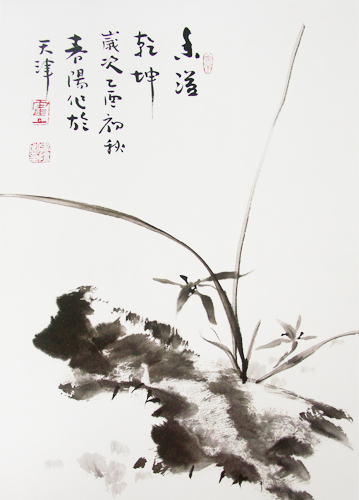 香溢
乾坤
歲次乙酉初秋
春陽作於
天津